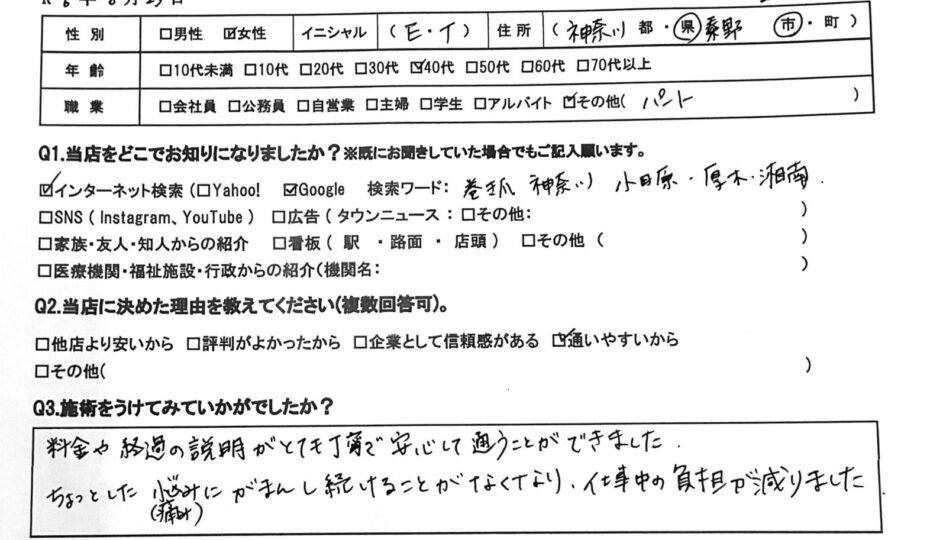 性別 □男性 ☑女性 イニシャル (E・T) 住所 (神奈川 都・県 秦野 市・町)
年齢 □10代未満 □10代 □20代 □30代 ☑40代 □50代 □60代 □70代以上
職業 □会社員 □公務員 □自営業 □主婦 □学生 □アルバイト ☑その他( パート )
Q1.当店をどこでお知りになりましたか?※既にお聞きしていた場合でもご記入願います。
☑インターネット検索 (□Yahoo! ☑Google 検索ワード: 巻き爪 神奈川 小田原・厚木・湘南.
□SNS ( Instagram、YouTube ) □広告 ( タウンニュース : □その他: )
□家族・友人・知人からの紹介 □看板 ( 駅 ・路面 ・ 店頭 ) □その他 ( )
□医療機関・福祉施設・行政からの紹介(機関名: )
Q2.当店に決めた理由を教えてください(複数回答可)。
□他店より安いから □評判がよかったから □企業として信頼感がある ☑通いやすいから
□その他( )
Q3.施術をうけてみていかがでしたか?
料金や経過の説明がとても丁寧で安心して通うことができました.
ちょっとした悩みにがまんし続けることがなくなり、仕事中の負担が減りました
(痛み)